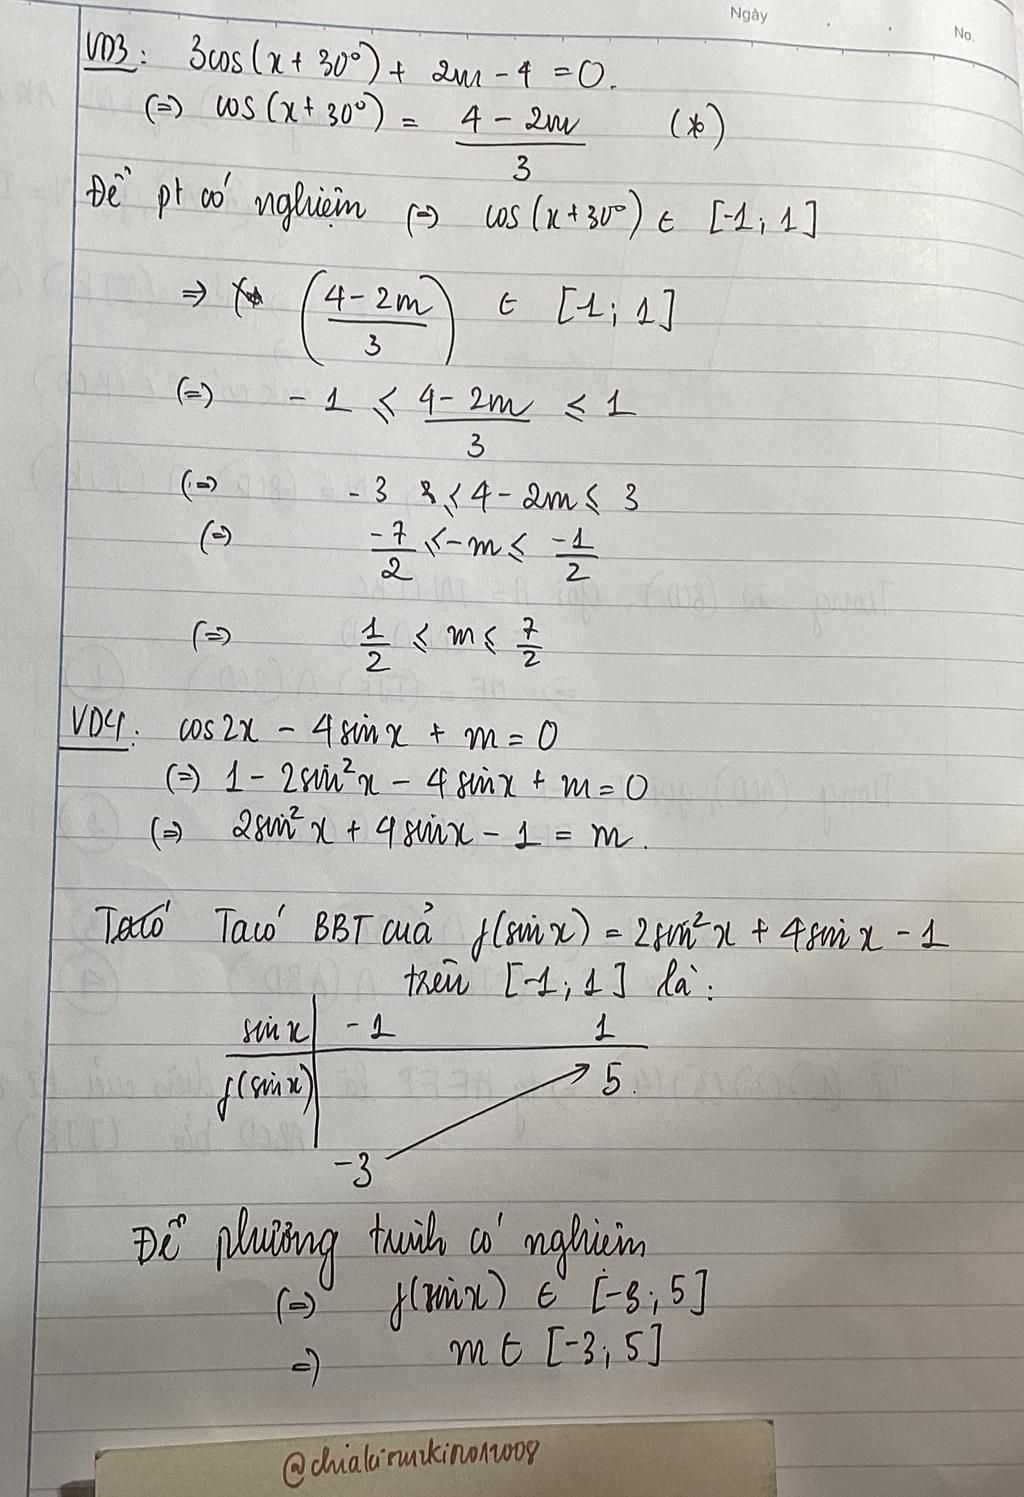 Ngày
No.
VD3: 3cos(x + 30°) + 2m - 4 = 0.
(=) cos(x + 30°) = (4 - 2m)/3 (*)
Để pt có nghiệm (=) cos(x + 30°) ∈ [-1; 1]
=> ((4 - 2m)/3) ∈ [-1; 1]
(=) - 1 ⩽ (4 - 2m)/3 ⩽ 1
(=) - 3 ⩽ 4 - 2m ⩽ 3
(=) -7/2 ⩽ - m ⩽ -1/2
(=) 1/2 ⩽ m ⩽ 7/2
VD4: cos2x - 4sinx + m = 0
(=) 1 - 2sin²x - 4sinx + m = 0
(=) 2sin²x + 4sinx - 1 = m.
Ta có Ta có BBT của f(sinx) = 2sin²x + 4sinx - 1
trên [-1; 1] là:
sinx -1 1
f(sinx) 5.
-3
Để phương trình có nghiệm
(=) f(sinx) ∈ [-3; 5]
=) m ∈ [-3; 5]